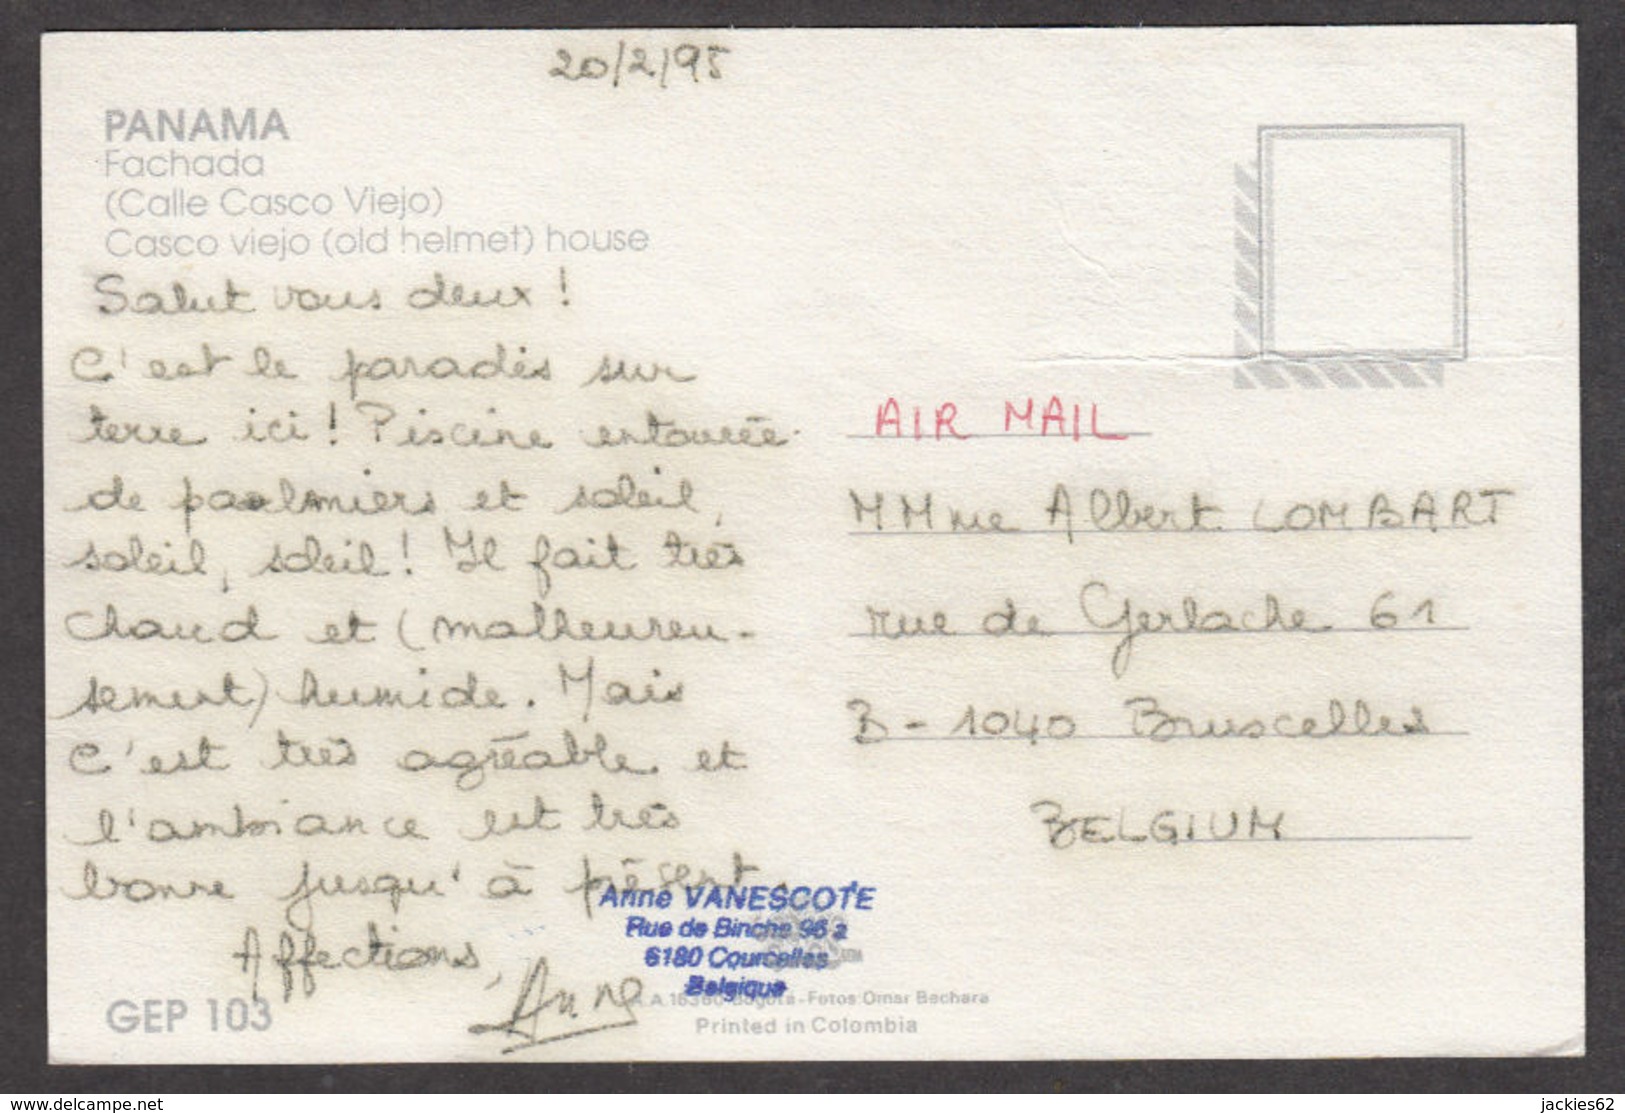 20/2/95
PANAMA
Fachada
(Calle Casco Viejo)
Casco viejo (old helmet) house
Salut vous deux !
C'est le paradis sur
terre ici ! Piscine entourée
de palmiers et soleil,
soleil, soleil ! Il fait très
chaud et (malheureu-
sement) humide. Mais
c'est très agréable et
l'ambiance est très
bonne jusqu'à présent.
Affections,
Anne
GEP 103
AIR MAIL
MMme Albert LOMBART
rue de Gerlache 61
B-1040 Bruxelles
BELGIUM
Anne VANESCOTE
Rue de Binche 96
6180 Courcelles
Belgique
A.A. Bogotá - Fotos: Omar Bechara
Printed in Colombia
www.delcampe.net
jackies62